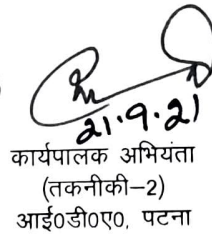 21.9.21
कार्यपालक अभियंता
(तकनीकी–2)
आई०डी०ए०, पटना